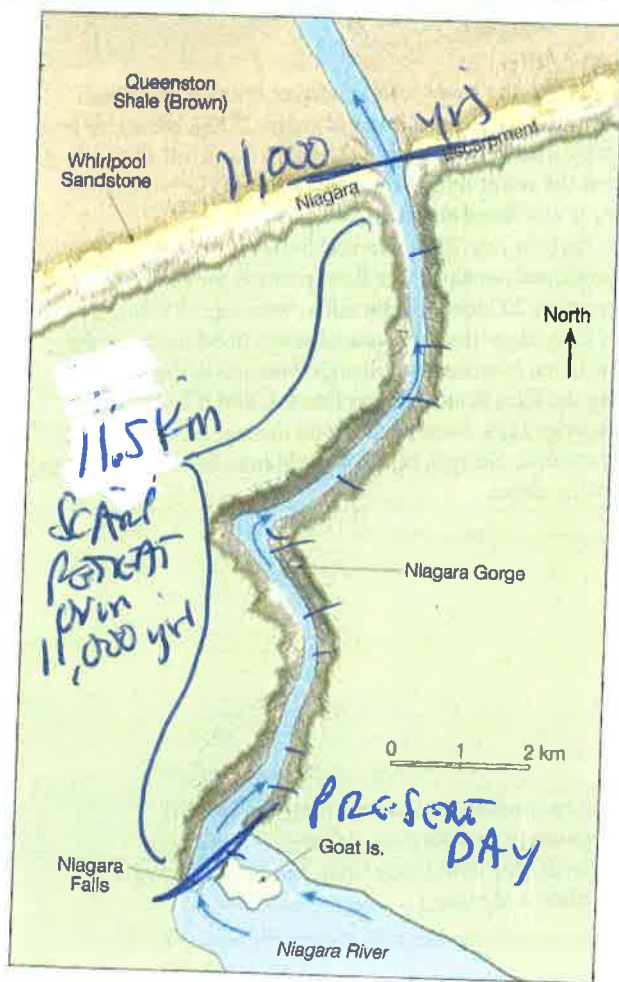 Queenston
Shale (Brown)
Whirlpool
Sandstone
11,000 yrs
Niagara Escarpment
North
11.5 Km
SCARP
RETREAT
OVER
11,000 yrs
Niagara Gorge
0 1 2 km
PRESENT
DAY
Goat Is.
Niagara
Falls
Niagara River